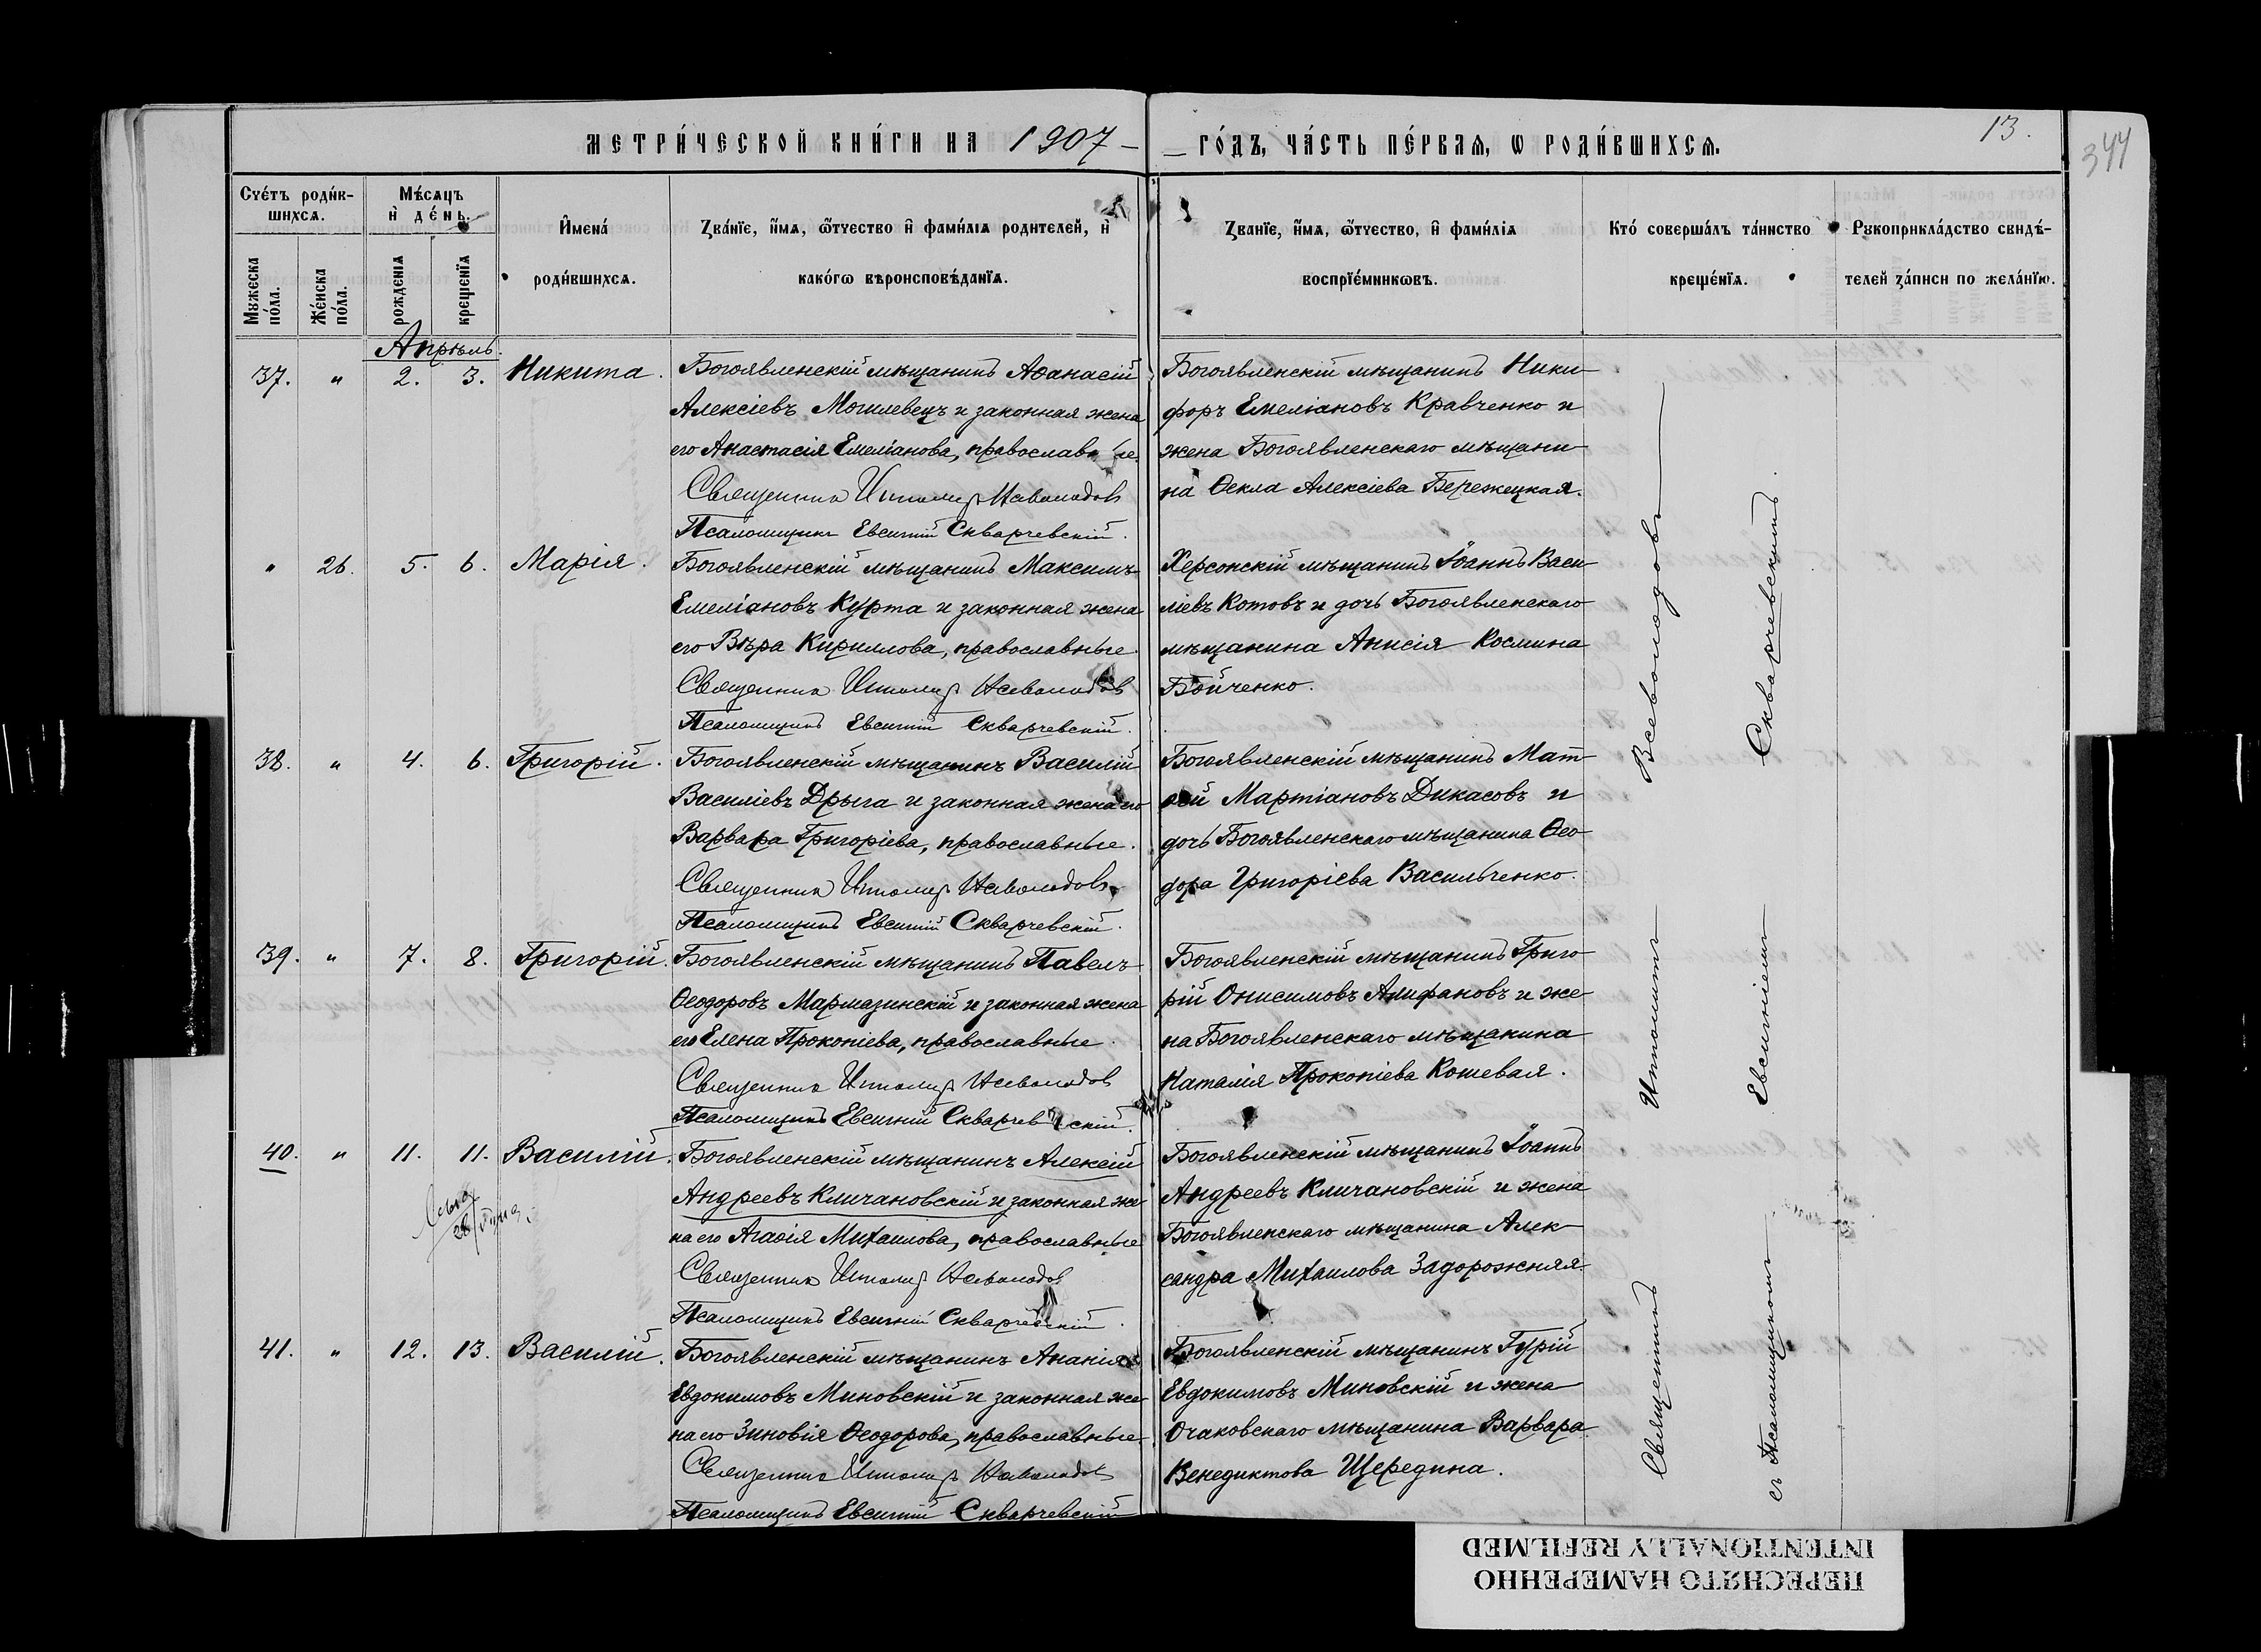 МЕТРИ́ЧЕСКОЙ КНИ́ГИ НА 1907 –
– ГО́ДЪ, ЧА́СТЬ ПЕ́РВАЯ, Ѡ РОДИ́ВШИХСЯ.
13.
344
Сче́тъ роди́в-
шихсѧ.
Мꙋжеска по́ла.
Же́нска по́ла.
Мѣ́сѧцъ и҆ де́нь.
рожденїѧ
крещенїѧ
И҆мена́
роди́вшихсѧ.
Зва́нїе, и҆́мѧ, ѻ҆́тчество и҆ фами́лїѧ родителей, и҆
како́гѡ вѣроисповѣ́данїѧ.
Званїе, и҆́мѧ, ѻ҆́тчество, и҆ фами́лїѧ
воспрїе́мникѡвъ.
Кто́ соверша́лъ та́инство
креще́нїѧ.
Рꙋкоприкла́дство свидѣ́-
телей за́писи по жела́нїю.
Апрѣль.
37. " 2. 3. Никита.
Богоявленскій мѣщанинъ Аѳанасій
Алексіевъ Могилевецъ и законная жена
его Анастасія Емеліанова, православные.
Священникъ Ипполитъ Всеволодовъ
Псаломщикъ Евсигній Скварчевскій.
Богоявленскій мѣщанинъ Ники-
форъ Емеліановъ Кравченко и
жена Богоявленскаго мѣщани-
на Ѳекла Алексіева Бережецкая.
" 26. 5. 6. Марія.
Богоявленскій мѣщанинъ Максимъ
Емеліановъ Курта и законная жена
его Вѣра Кириллова, православные.
Священникъ Ипполитъ Всеволодовъ
Псаломщикъ Евсигній Скварчевскій.
Херсонскій мѣщанинъ Іоаннъ Васи-
ліевъ Котовъ и дочь Богоявленскаго
мѣщанина Анисія Космина
Бойченко.
38. " 4. 6. Григорій.
Богоявленскій мѣщанинъ Василій
Василіевъ Дрыга и законная жена его
Варвара Григоріева, православные.
Священникъ Ипполитъ Всеволодовъ
Псаломщикъ Евсигній Скварчевскій.
Богоявленскій мѣщанинъ Мат-
ѳей Мартіановъ Дикасовъ и
дочь Богоявленскаго мѣщанина Ѳео-
дора Григоріева Васильченко.
39. " 7. 8. Григорій.
Богоявленскій мѣщанинъ Павелъ
Ѳеодоровъ Мармазинскій и законная жена
его Елена Прокопіева, православные.
Священникъ Ипполитъ Всеволодовъ
Псаломщикъ Евсигній Скварчевскій.
Богоявленскій мѣщанинъ Григо-
рій Онисимовъ Алифановъ и же-
на Богоявленскаго мѣщанина
Наталія Прокопіева Кошевая.
40. " 11. 11. Василій.
Богоявленскій мѣщанинъ Алексій
Андреевъ Кличановскій и законная же-
на его Агаѳія Михаилова, православные
Священникъ Ипполитъ Всеволодовъ
Псаломщикъ Евсигній Скварчевскій.
Богоявленскій мѣщанинъ Іоаннъ
Андреевъ Кличановскій и жена
Богоявленскаго мѣщанина Алек-
сандра Михаилова Задорожняя.
41. " 12. 13. Василій.
Богоявленскій мѣщанинъ Ананія
Евдокимовъ Миновскій и законная же-
на его Зиновія Ѳеодорова, православные.
Священникъ Ипполитъ Всеволодовъ
Псаломщикъ Евсигній Скварчевскій
Богоявленскій мѣщанинъ Гурій
Евдокимовъ Миновскій и жена
Очаковскаго мѣщанина Варвара
Венедиктова Щередина.
Священникъ Ипполитъ Всеволодовъ
съ Псаломщикомъ Евсигніемъ Скварчевскимъ.
ПЕРЕСНЯТО НАМЕРЕННО
INTENTIONALLY REFILMED